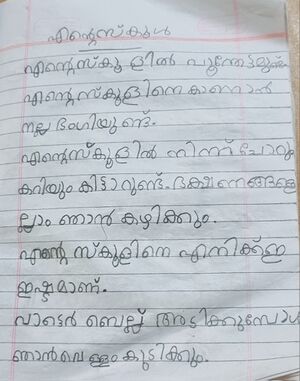 എൻ്റെസ്കൂൾ
എൻ്റെസ്കൂളിൽ പൂന്തോട്ടമുണ്ട്
എൻ്റെസ്കൂളിനെ കാണാൻ
നല്ല ഭംഗിയുണ്ട്.
എൻ്റെസ്കൂളിൽ നിന്ന് ചോറും
കറിയും കിട്ടാറുണ്ട്. ഭക്ഷണങ്ങളെ
ല്ലാം ഞാൻ കഴിക്കും.
എൻ്റെ സ്കൂളിനെ എനിക്ക്
ഇഷ്ടമാണ്.
വാട്ടെർ ബെല്ല് അടിക്കുമ്പോൾ
ഞാൻവെള്ളം കുടിക്കും.